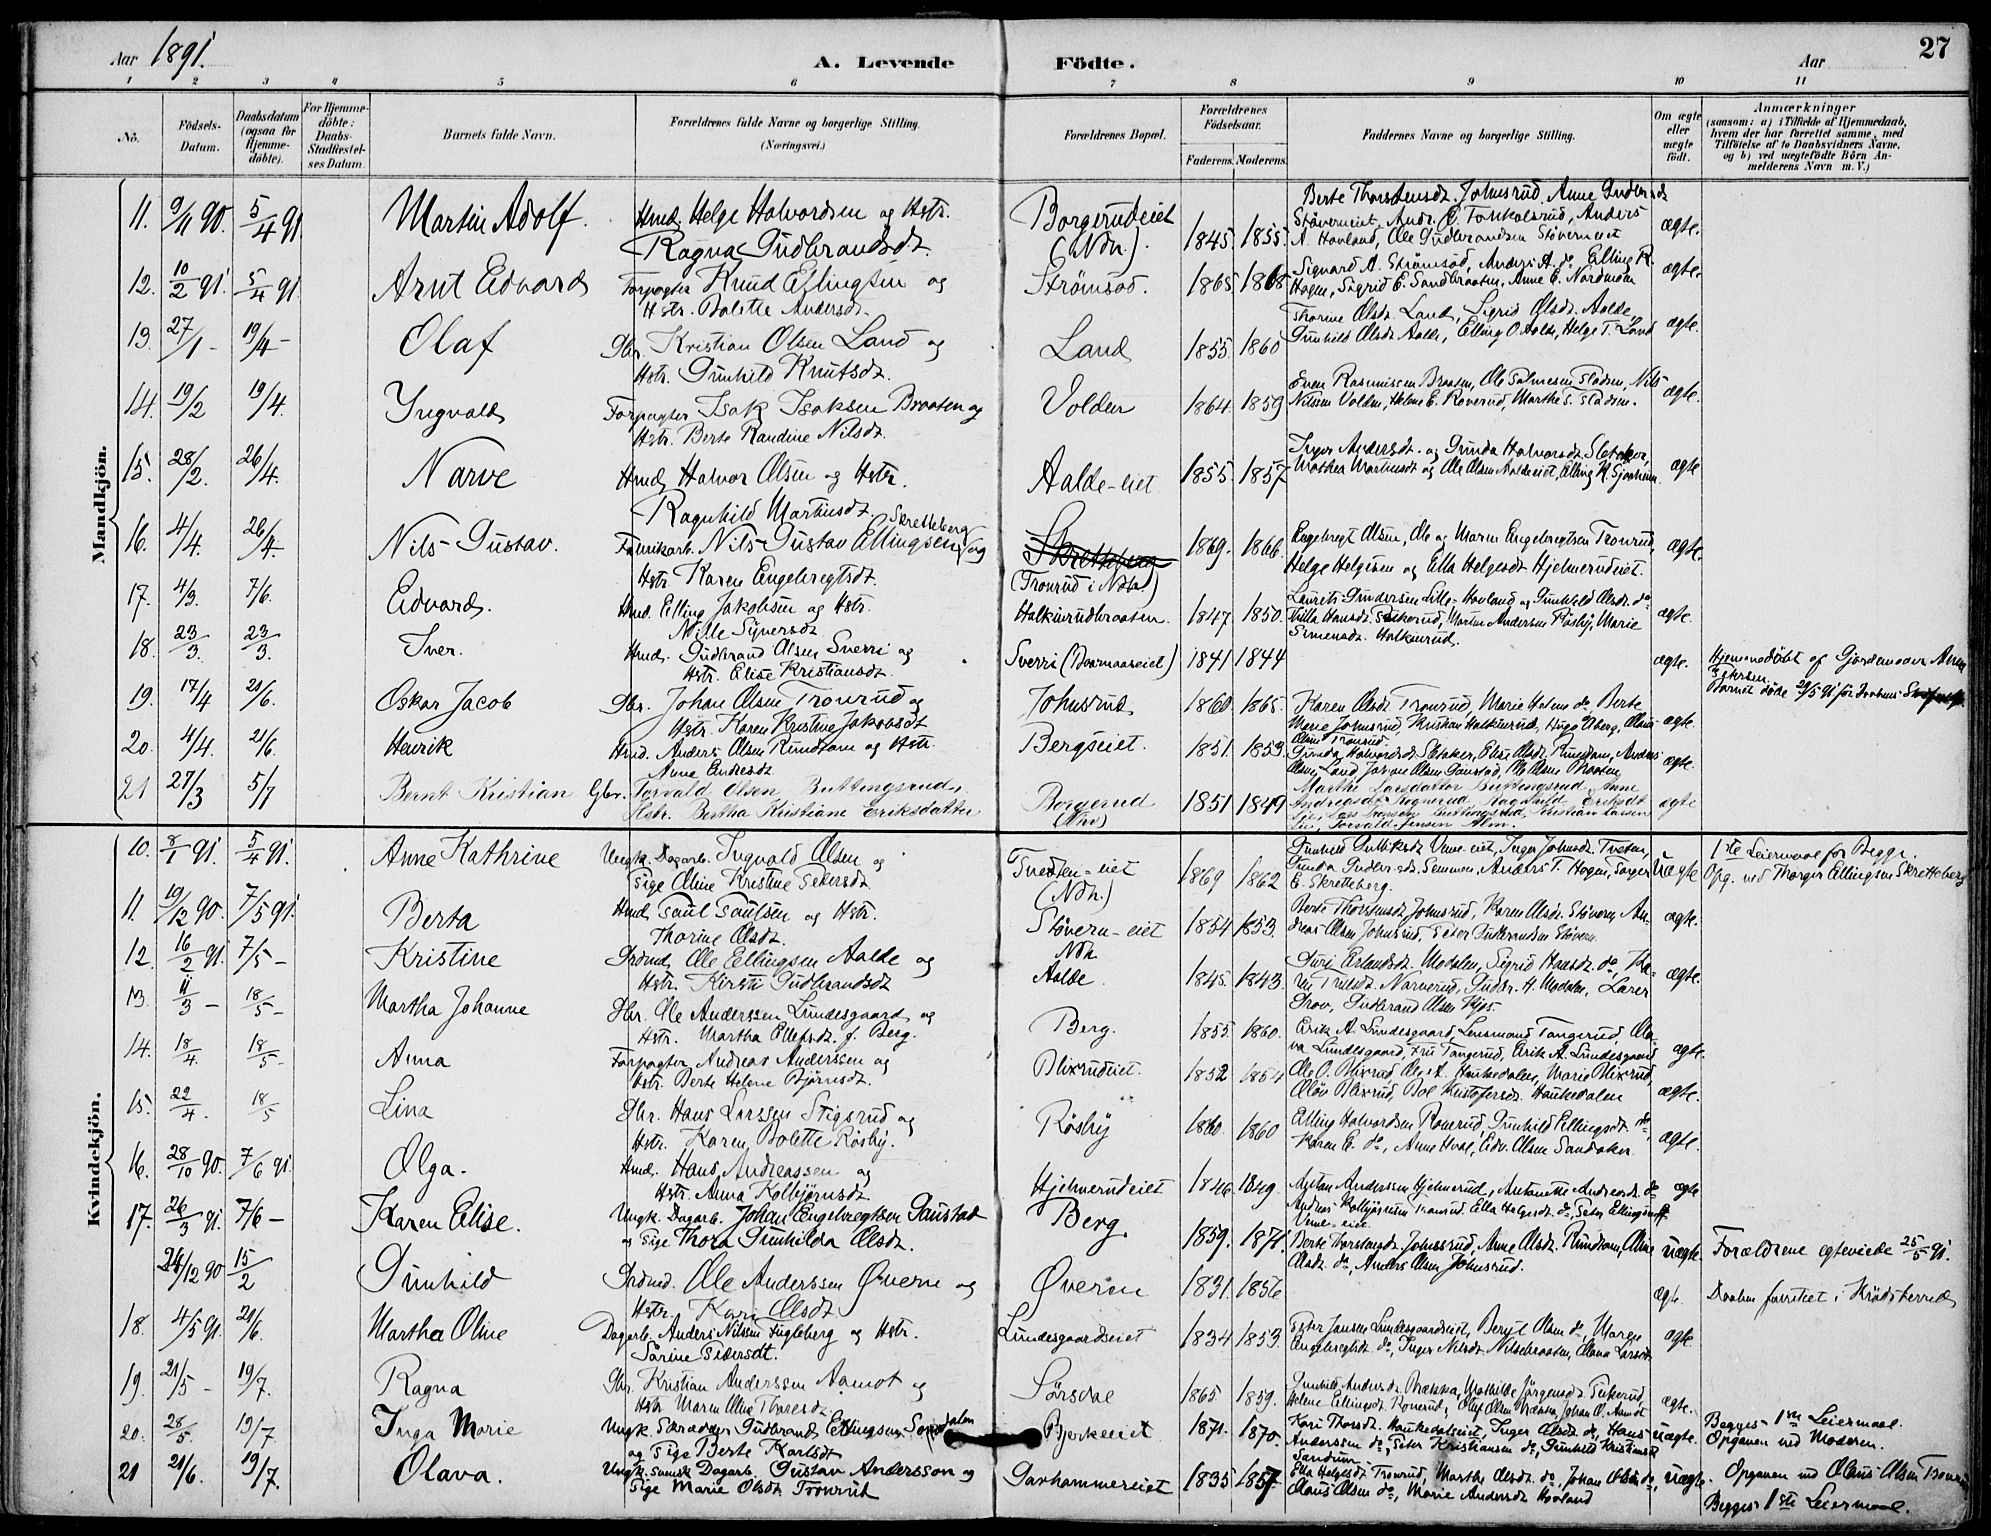 Aar 1891.
A. Levende Födte.
Aar
27
1 2 3 4 5 6 7 8 9 10 11
No.
Födsels-Datum.
Daabsdatum (ogsaa for Hjemme-döbte).
For Hjemme-döbte: Daabs-Stadfæstel-ses Datum.
Barnets fulde Navn.
Forældrenes fulde Navne og borgerlige Stilling. (Næringsvei.)
Forældrenes Bopæl.
Forældrenes Födselsaar.
Faderens. Moderens.
Faddernes Navne og borgerlige Stilling.
Om ægte eller uægte födt.
Anmærkninger
(saasom: a) i Tilfælde af Hjemmedaab, hvem der har forrettet samme, med Tilföielse af to Daabsvidners Navne. og b) ved uægtefödte Börn An-melderens Navn m. V.)
Mandkjön.
11. 9/11 90. 5/4 91. Martin Adolf. Hmd. Helge Halvordsen og Hstr. Ragna Gudbrandsdt. Borgerudeiet (Ndn). 1845. 1855. Berte Thorstensdt. Johnsrud, Anne Gudbrsdt Stöverneiet, Andr. E. Tonkolsrud, Anders A. Hovland, Ole Gudbrandsen Stöverneiet ægte.
12. 10/2 91. 5/4 91. Arnt Edvard Forpagter Knud Ellingsen og Hstr. Bolette Andersdt. Strömsod. 1865 1868 Sigvard A. Strömsod, Anders A. do Elling K. Hagen, Sigrid E. Sandbraaten, Anne E. Nordmoen ægte.
13. 27/1 - 19/4 - Olaf Gbr. Kristian Olsen Land og Hstr. Gunhild Knutsdt. Land 1855. 1860 Thorine Olsdt. Land, Sigrid Olsdt. Aalde, Gunhild Olsdt. Aalde, Elling O. Aalde, Helge T. Land ægte.
14. 19/2 19/4. Yngvald Forpagter Isak Isaksen Braaten og Hstr. Berte Randine Nilsdt. Volden 1864. 1859 Even Rasmussen Braaten, Ole Nils Nilssen Volden, Helene E. Roverud, Marthe S. ægte.
15. 28/2. 26/4. Narve Hmd. Halvor Olsen og Hstr. Ragnhild Martinsdt. Aalde-eiet 1855. 1857 Inger Andersdt. og Gunda Halvorsdt. Sletaker, Mathea Martinsdt og Ole Olsen Aaldeeiet, Elling H. ægte
16. 4/4. 26/4. Nils-Gustav. Fabrikarb. Nils-Gustav Ellingsen Skretteberg og Hstr Karen Engebregtsdt. (Tronrud i Ndn.) 1869. 1866. Engebregt Olsen, Ole og Maren Engebregtsen Tronrud, Helge Helgesen og Ella Helgesdt Hjelmerudeiet. ægte.
17. 4/3. 7/6. Edvard. Hmd. Elling Jakobsen og Hstr. Nille Syversdt Halkinrudbraaten. 1847. 1850. Laurits Gundersen Lille-Hovland og Gunhild Olsdt. do Milla Hansdt. Martin Andersen Rösby, Marie Simensdt. Halkinrud. ægte.
18. 23/3. 23/3. Iver. Hmd. Gudbrand Olsen Sverri og Hstr. Elise Kristiansdt. Sverri 1841 1844 ægte. Hjemmedöbt af Gjordemoder Anne Barnet döde 20/5 91 för
19. 17/4 21/6. Oskar Jacob Gbr. Johan Olsen Tronrud og Hstr. Karen Kristine Jakobsdt Johnsrud 1860. 1865. Karen Olsdt. Tronrud, Marie Helene do Berte Marie Johnsrud, Kristian Halkinrud, Hugo Olberg, Olaus Olsen Tronrud. ægte.
20. 4/4. 21/6. Henrik Hmd. Anders Olsen Rundham og Hstr. Anne Endresdt Bergseiet. 1851. 1853. Gunda Halvorsdt. Sletaker, Elise Olsdt. Rundham, Anders Olsen Land, Johan Olsen Gaustad, Ole Olsen Braaten ægte.
21 27/3 5/7 Bernt Kristian Gbr. Torvald Olsen Buttingsrud. Hstr. Bertha Kristiane Eriksdatter Borgerud (Nhv) 1851 1849 Marthe Larsdatter Buttingsrud, Anne Andreasdt. Ragnhild Eriksdt Lie, Buttingsrud, Kristian Larsen Lie, Torvald Jensen Alm. ægte
Kvindekjön.
10. 8/1 91. 5/4 91. Anne Kathrine Ungk. Dagarb. Ingvald Olsen og Pige Oline Kristine Pedersdt. Tvedten-eiet (Ndn.) 1869 1862 Gunhild Gulliksdt Veme-eiet, Inger Johnsdt. Tveten, Gunda Gudbrsdt. Semmen, Anders T. Hagen, Torger E. Skretteberg. Uægte 1ste Leiermaal for Begge. Opg. ved Thorger Ellingsen Skretteberg
11. 19/12 90. 7/5 91. Berta Hmd. Paul Paulsen og Hstr. Thorine Olsdt. Stövern-eiet Ndn 1854 1853. Berte Thorstensdt Johnsrud, Karen Olsdt. Stövern, Andreas Olsen Johnsrud, Peter Gudbrandsen Stövern ægte.
12. 16/2 91. 7/5 - Kristine Grdmd. Ole Ellingsen Aalde og Hstr. Kirsti Gudbrandsdt Aalde. 1845. 1843. Guri Erlandsdt. Modalen, Sigrid Hansdt. do, Karen Trulsdt. Narverud, Gudbr. H. Modalen, Grov, Gudbrand Olsen Kjös. ægte.
13. 11/3 - 18/5 - Martha Johanne Gbr. Ole Anderssen Lundesgaard og Hstr. Martha Ellefsdt. f. Berg. Berg. 1855. 1860. Erik A. Lundesgaard, Lensmand Tangerud, Olava Lundesgaard, Fru Tangerud, Erik A. Lundesgaard ægte.
14. 18/4 18/5 - Anna Forpagter Andreas Anderssen og Hstr. Berte Helene Bjørnsdt. Blixrudeiet. 1852 1854 Ole O. Blixrud Ole A. Haukedalen, Marie Blixrud, Olöv Blixrud, Boel Kristofersdt. Haukedalen ægte.
15. 22/4. 18/5 Lina Gbr. Hans Larssen Stigsrud og Hstr. Karen Bolette Rösby. Rösby 1860. 1860 Elling Halvordsen Roverud, Gunhild Ellingsdt. do, Karen E. do, Anne Hval, Edv. Olsen Sandaker. ægte.
16. 28/10 90. 7/6 91. Olga. Hmd. Hans Andreassen og Hstr. Anna Kolbjørnsdt Hjelmerudeiet 1846 1849. Anton Anderssen Hjelmerud, Antonette Andreasdt. do Andreas Kolbjörnsen Tronrud, Ella Helgesdt. do, Peter Ellingsen Veme-eiet. ægte
17. 26/3 91. 7/6 - Karen Elise. Ungk. Dagarb. Johan Engebregtsen Gaustad og Pige Thora Gunhilda Olsdt. Berg. 1859. 1871. Berte Thorstensdt. Johnsrud, Anne Olsdt. Rundham, Oline Olsdt. do, Anders Olsen Johnsrud. uægte. Forældrene egteviede 25/5 91.
24/12 90 15/2 Gunhild Grdmd. Ole Anderssen Øvern og Hstr. Kari Olsdt. Øvern 1831. 1856 ægte. Daaben forrettet i Krödsherred
18. 4/5 91. 21/6. Martha Oline Dagarb. Anders Nilssen Fugleberg og Hstr. Sörine Pedersdt. Lundesgaardseiet 1834 1853. Peter Jansen Lundesgaardseiet, Bergit Olsen do, Maren Engebregtsdt. do, Inger Nilsdt. Nilsebraaten, Olava Larsdt. ægte
19. 21/5 - 19/7. Ragna Gbr. Kristian Anderssen Aamot og Hstr. Maren Oline Thoresdt. Sörsdal 1865 1859. Gunhild Andersdt. Brække, Mathilde Jörgensdt. Helene Ellingsdt Roverud, Olaf Olsen Johan O. Aamot ægte.
20. 28/5. 19/7. Inga Marie Ungk. Skrædder Gudbrand Ellingsen og Pige Berte Karlsdt Bjerkeeiet 1871. 1870. Kari Thorsdt. Haukedalseiet, Inger Olsdt. do, Hans Anderssen do, Peter Kristiansen do, Gunhild Kristiansdt Sandum uægte. Begges 1ste Leiermaal. Opgaven ved Moderen.
21 21/6. 19/7. Olava. Ungk. svensk Dagarb. Gustav Andersson og Pige Marie Olsdt. Tronrud Garhammereiet 1835 1857. Ella Helgesdt. Tronrud, Marthe Olsdt. do, Johan Olsen do, Olaus Olsen do, Marie Andersdt. Hovland uægte. Opgaven ved Olaus Olsen Tronrud Begges 1ste Leiermaal.